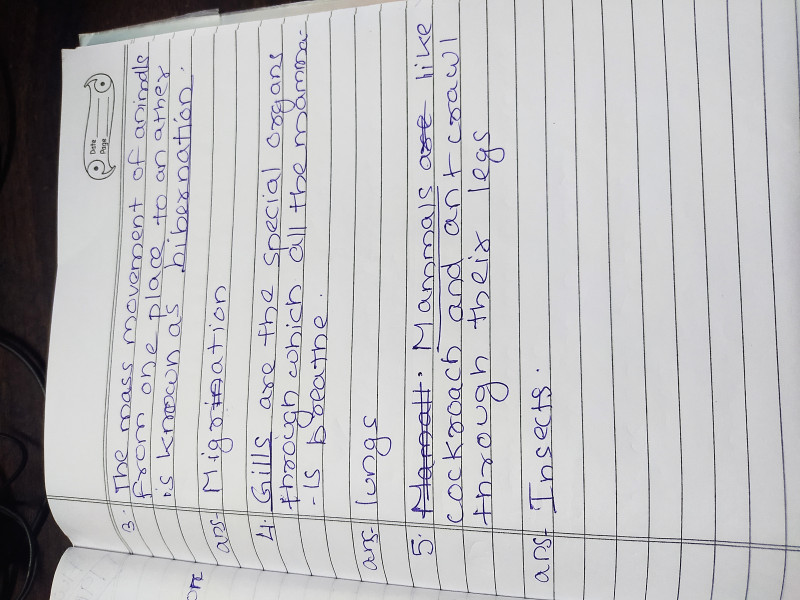 Date
Page
3. The mass movement of animals
from one place to an other
is known as hibernation.
ans- Migration
4. Gills are the special organs
through which all the mamma-
-ls breathe.
ans- lungs
5. Mammals like
cockroach and ant crawl
through their legs
ans- Insects.